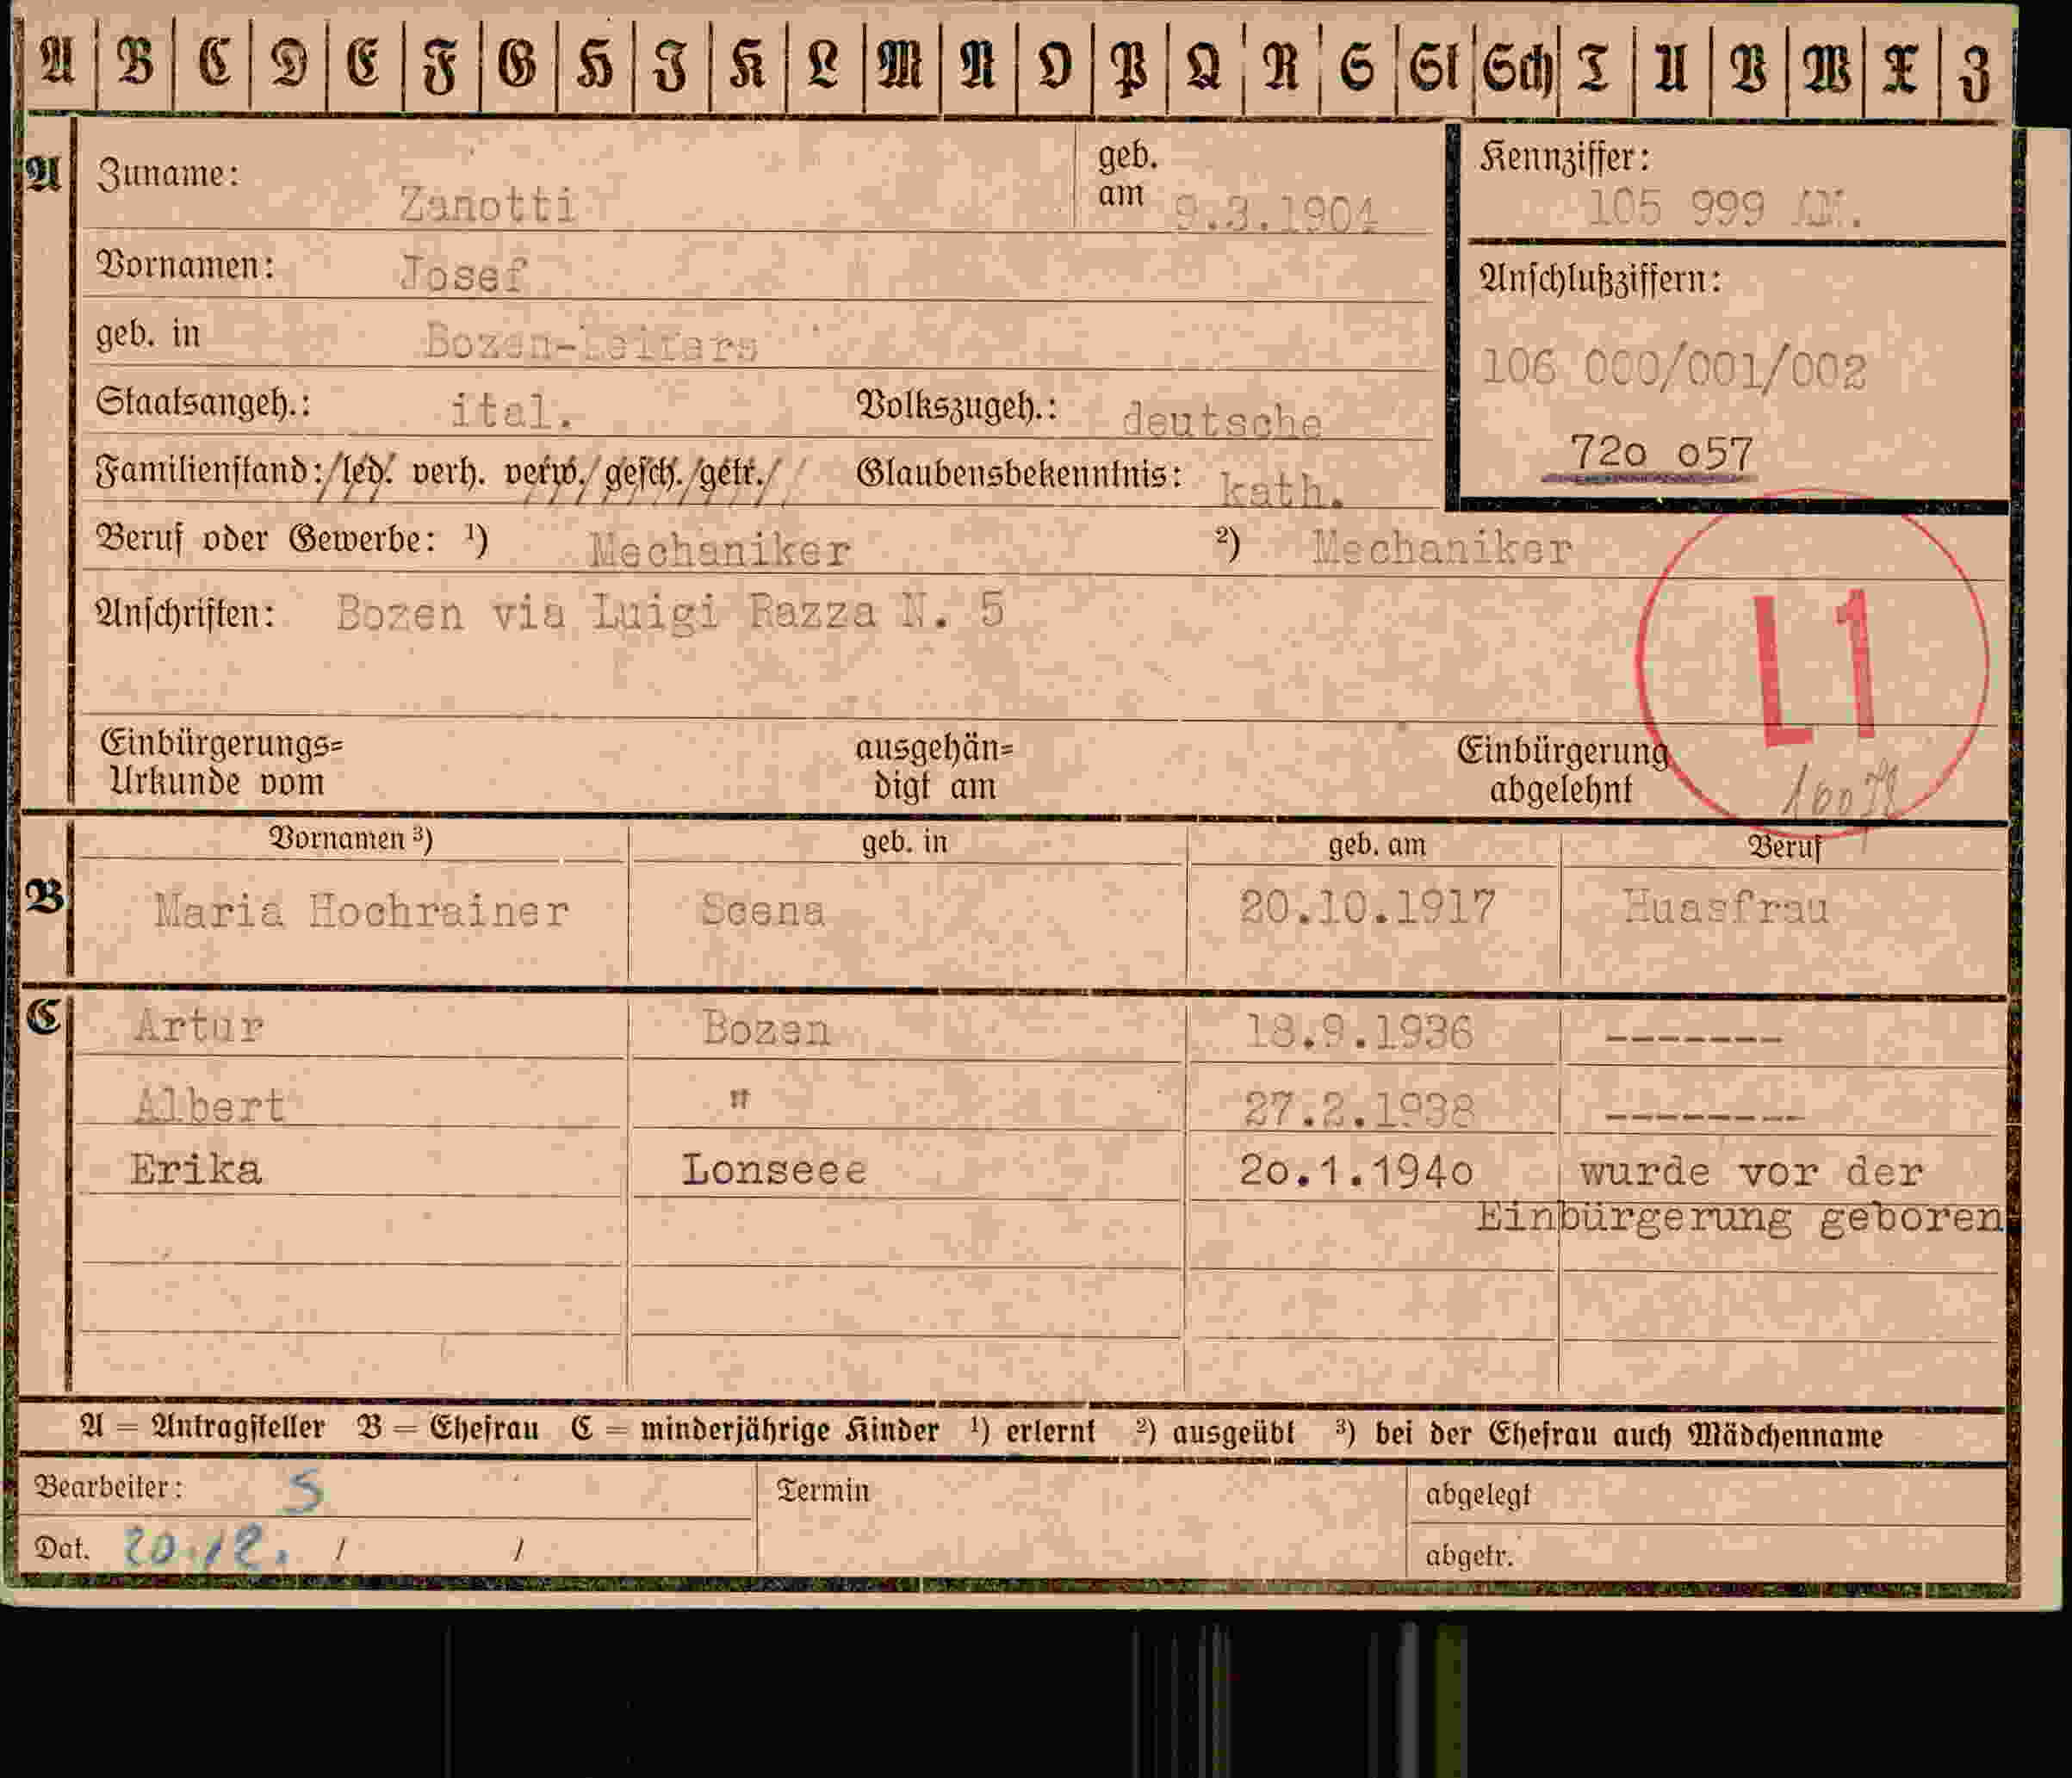 A B C D E F G H I K L M N O P Q R S St Sch T U V W X Z
A Zuname: Zanotti geb. am 9.3.1904
Kennziffer: 105 999
Vornamen: Josef
Anschlußziffern:
geb. in Bozen-Leifers
106 000/001/002
Staatsangeh.: ital. Volkszugeh.: deutsche
72o o57
Familienstand: led. verh. verw. gesch. getr. Glaubensbekenntnis: kath.
Beruf oder Gewerbe: ¹) Mechaniker ²) Mechaniker
Anschriften: Bozen via Luigi Razza N. 5
L1
Einbürgerungs=
Urkunde vom
ausgehän=
digt am
Einbürgerung
abgelehnt
Vornamen ³) geb. in geb. am Beruf
B Maria Hochrainer Scena 20.10.1917 Huasfrau
C Artur Bozen 18.9.1936 -------
Albert " 27.2.1938 --------
Erika Lonseee 2o.1.194o wurde vor der
Einbürgerung geboren
A = Antragsteller B = Ehefrau C = minderjährige Kinder ¹) erlernt ²) ausgeübt ³) bei der Ehefrau auch Mädchenname
Bearbeiter: S Termin abgelegt
Dat. 20.12. / / abgetr.